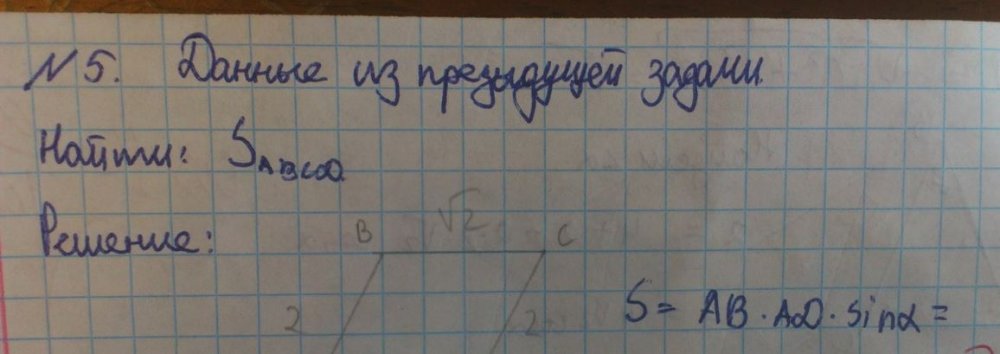 N 5. Данные из предыдущей задачи.
Найти: S ABCD
Решение:
B √2 C
2 2
S = AB · AD · sinα =